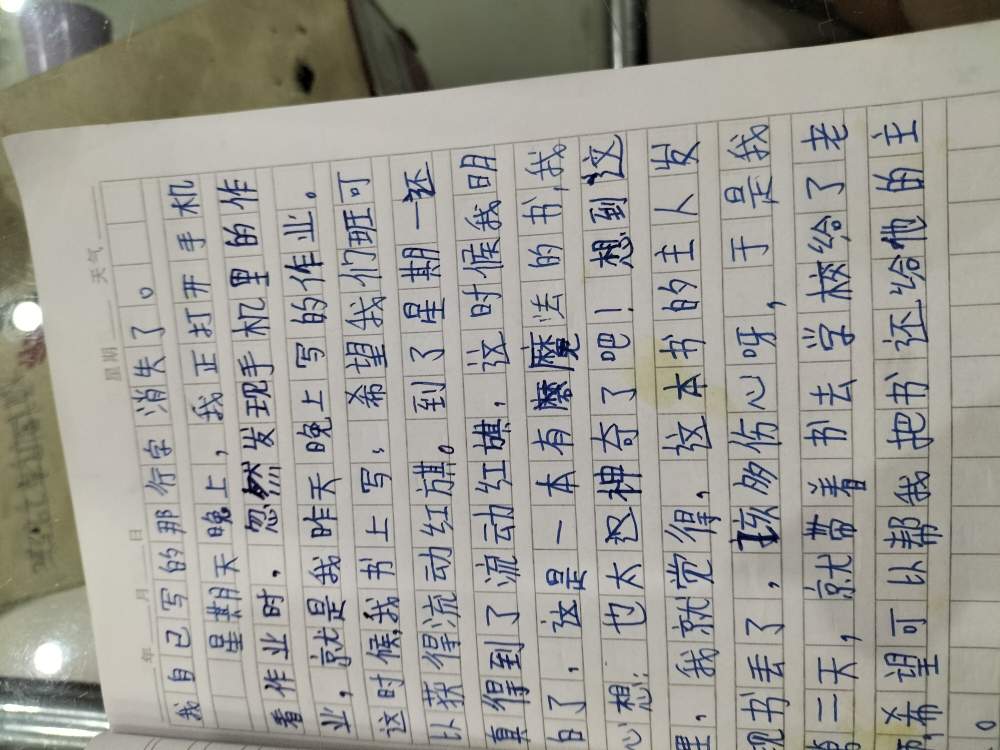 年 月 日 星期 天气
我自己写的那行字消失了。
星期天晚上，我正打开手机
看作业时，忽然发现手机里的作
业，就是我昨天晚上写的作业。
这时候，我书上写：希望我们班可
以获得流动红旗。到了星期一还
真得到了流动红旗，这时候我明
白了，这是一本有魔法的书，我
心想：也太神奇了吧！想到这
里，我就觉得，这本书的主人发
现书丢了，该多伤心呀，于是我
第二天，就带着书去学校给了老
希望可以帮我把书还给他的主
。